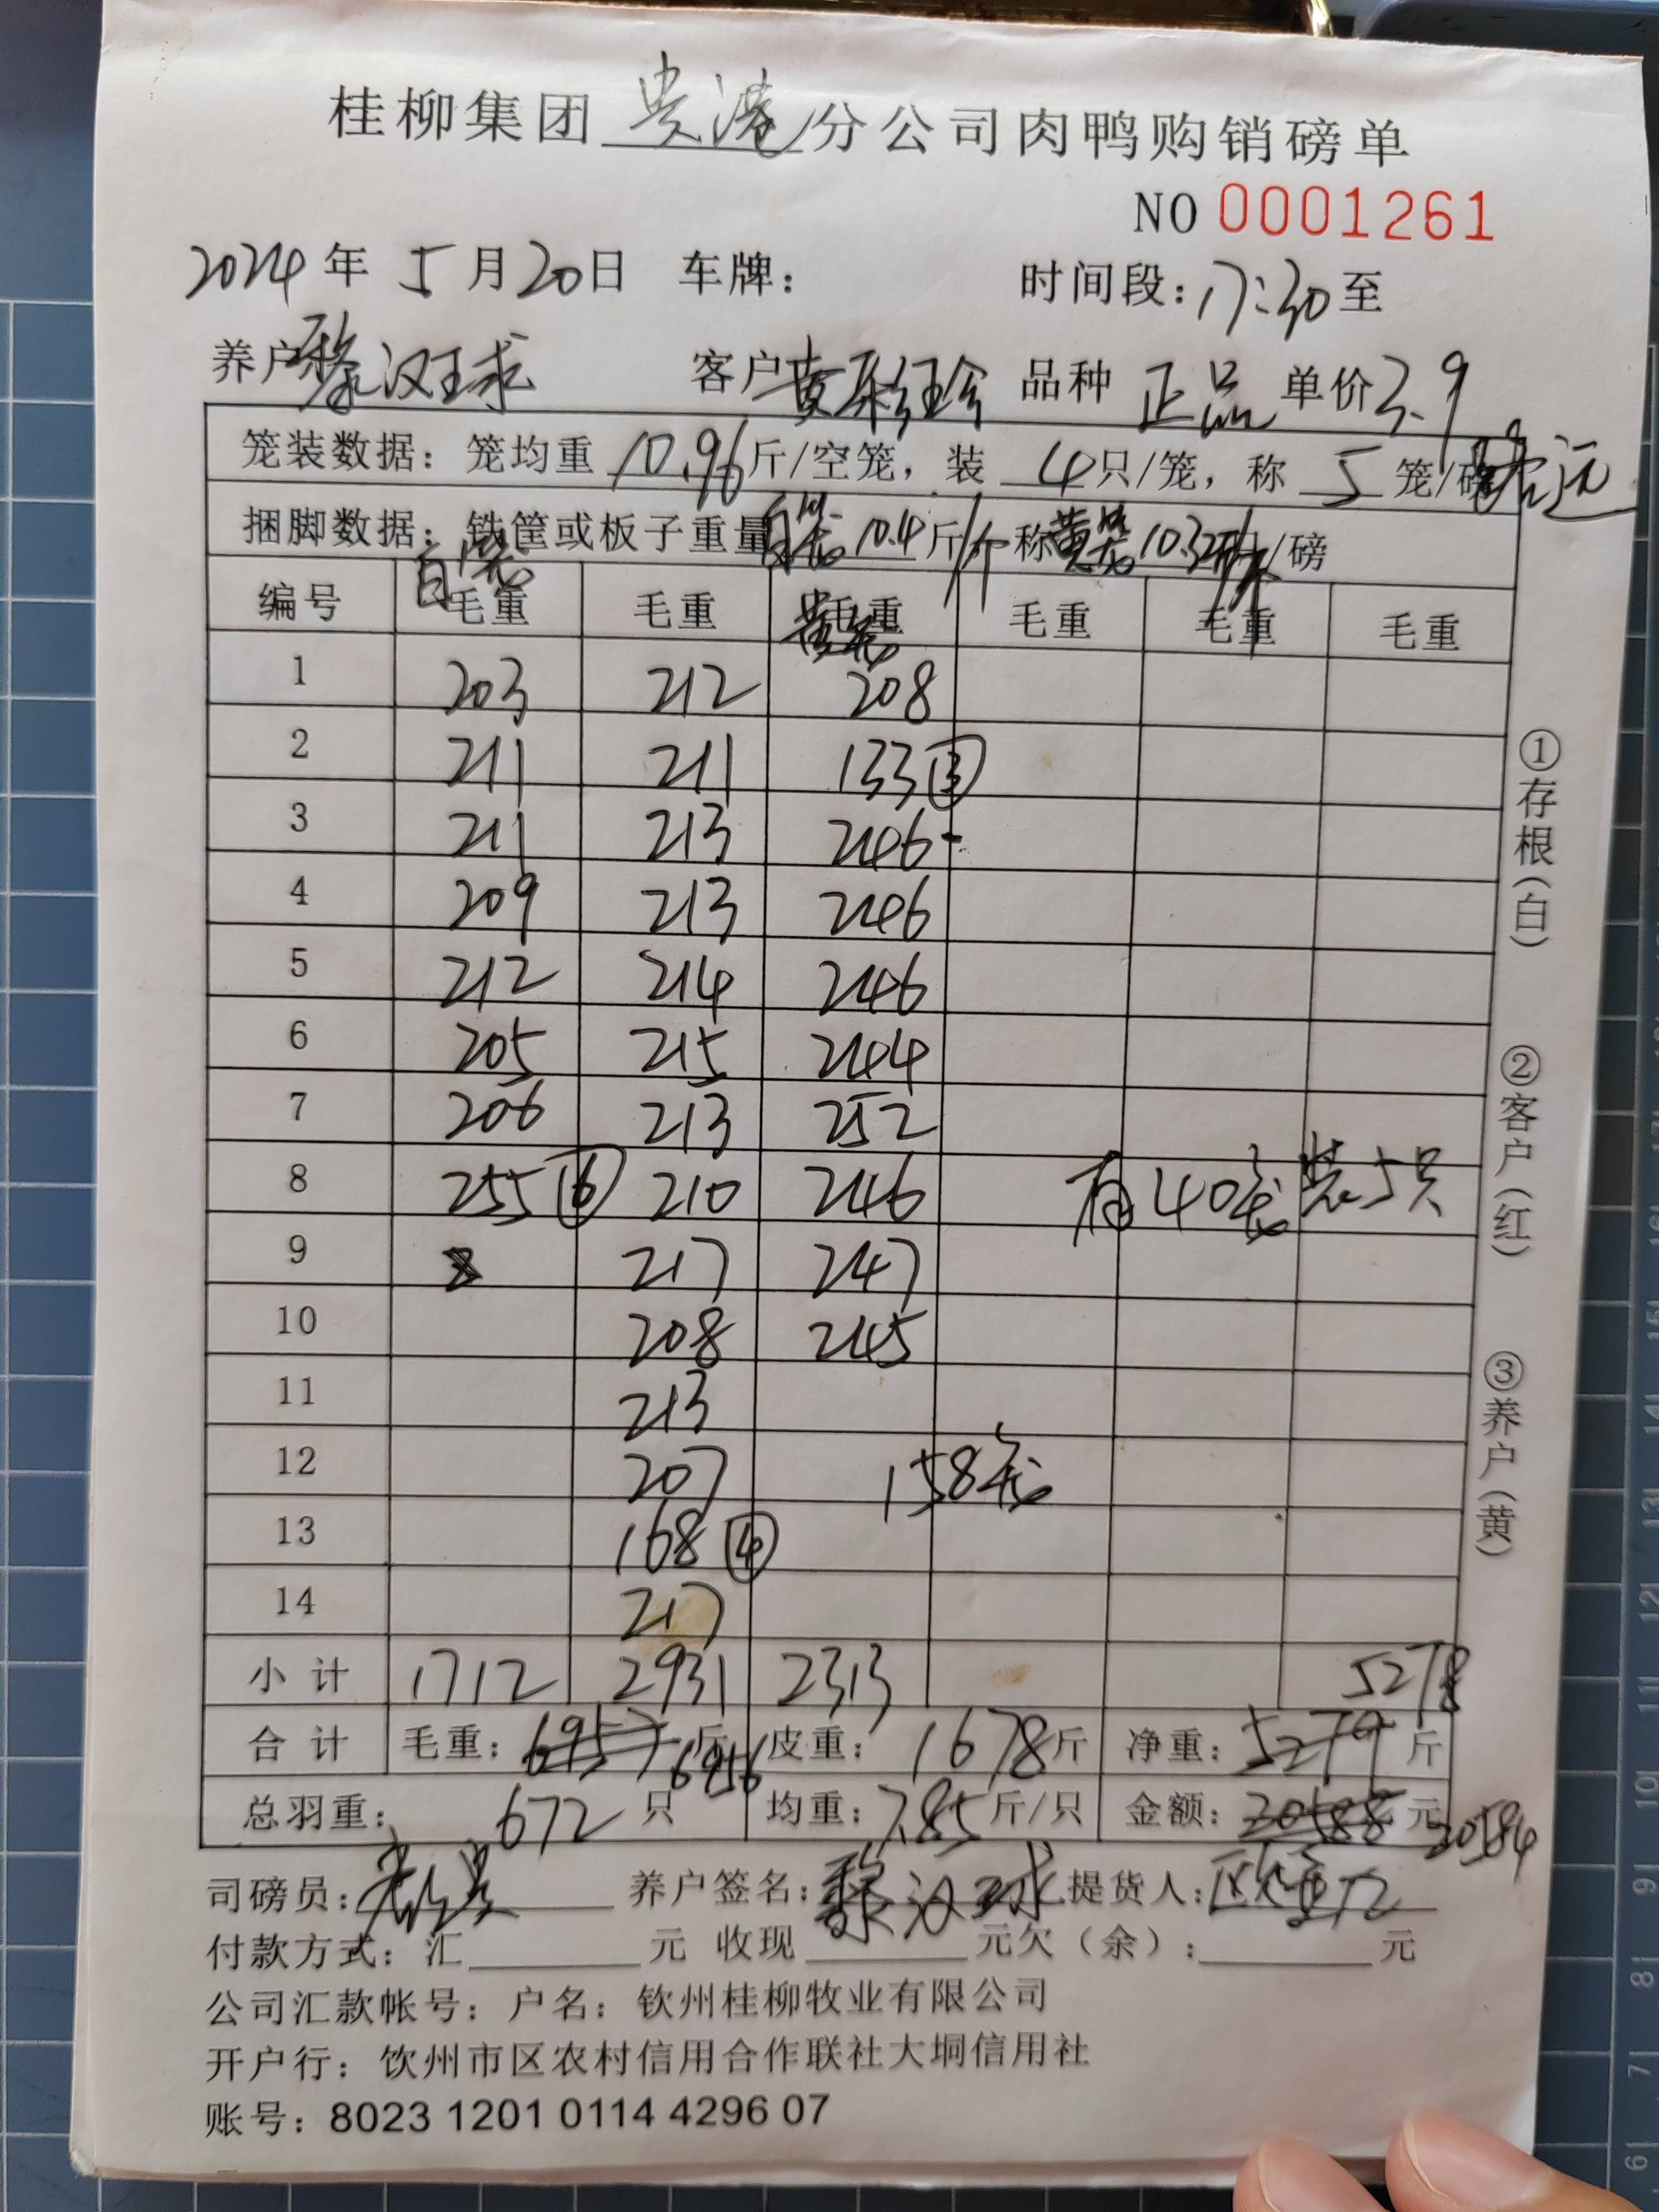 桂柳集团贵港分公司肉鸭购销磅单
NO 0001261
2024年5月20日 车牌： 时间段：17:30至
养户黎汉球 客户黄 品种正品 单价3.9
笼装数据：笼均重10.96斤/空笼，装4只/笼，称5笼/磅
捆脚数据：铁筐或板子重量 10.4斤/个 称 10.32 /磅
编号 毛重 毛重 毛重 毛重 毛重 毛重
1 203 212 208
2 211 211 133③
3 211 213 246-
4 209 213 246
5 212 214 246
6 205 215 244
7 206 213 252
8 255⑥ 210 246 有40笼装5只
9 217 247
10 208 245
11 213
12 207 158笼
13 168④
14 217
小计 1712 2931 2313 5278
合计 毛重：6957斤 6956 皮重：1678斤 净重：5279斤
总羽重：672只 均重：7.85斤/只 金额：20588元 20584
司磅员： 养户签名：黎汉球 提货人：
付款方式：汇 元 收现 元欠（余）： 元
公司汇款帐号：户名：钦州桂柳牧业有限公司
开户行：饮州市区农村信用合作联社大垌信用社
账号：8023 1201 0114 4296 07
①存根（白）
②客户（红）
③养户（黄）